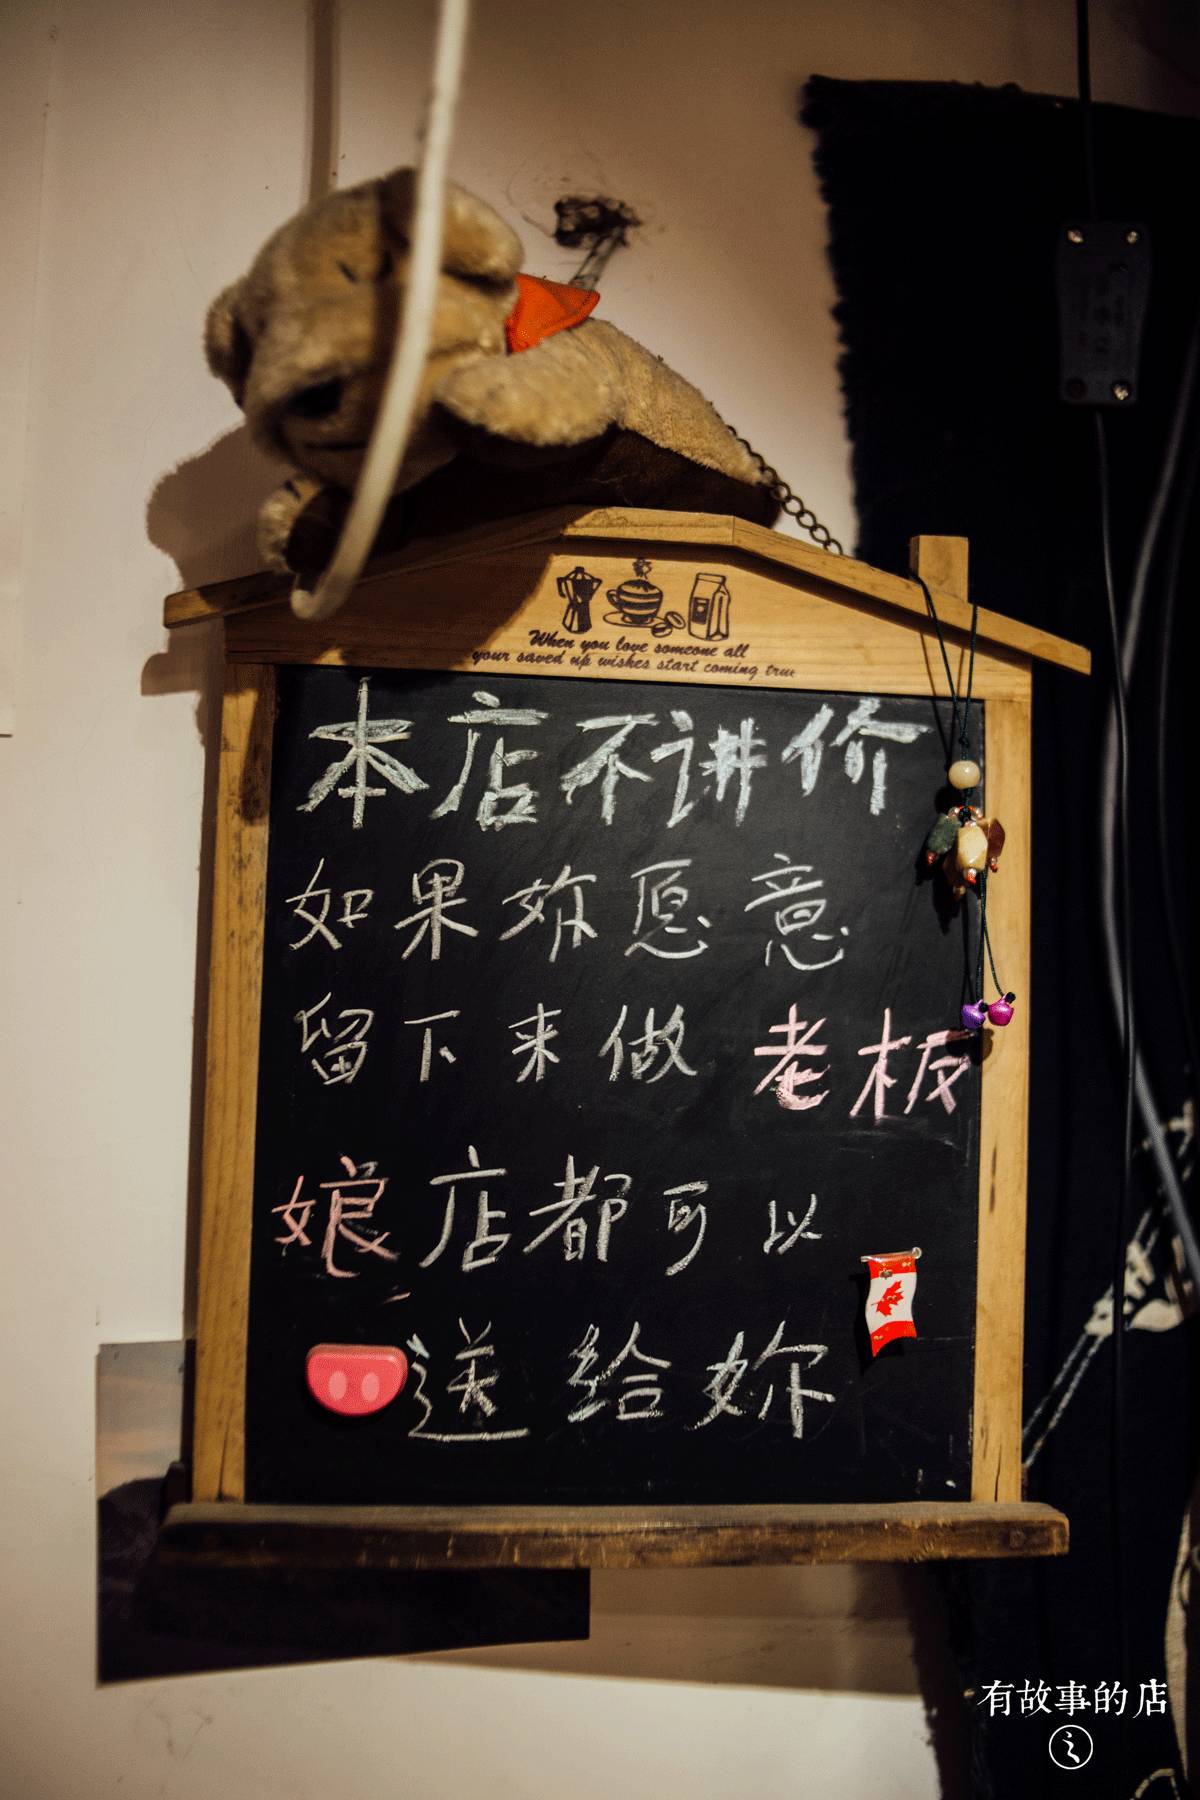 When you love someone all
your saved up wishes start coming true
本店不讲价
如果妳愿意
留下来做老板
娘店都可以
送给妳
有故事的店